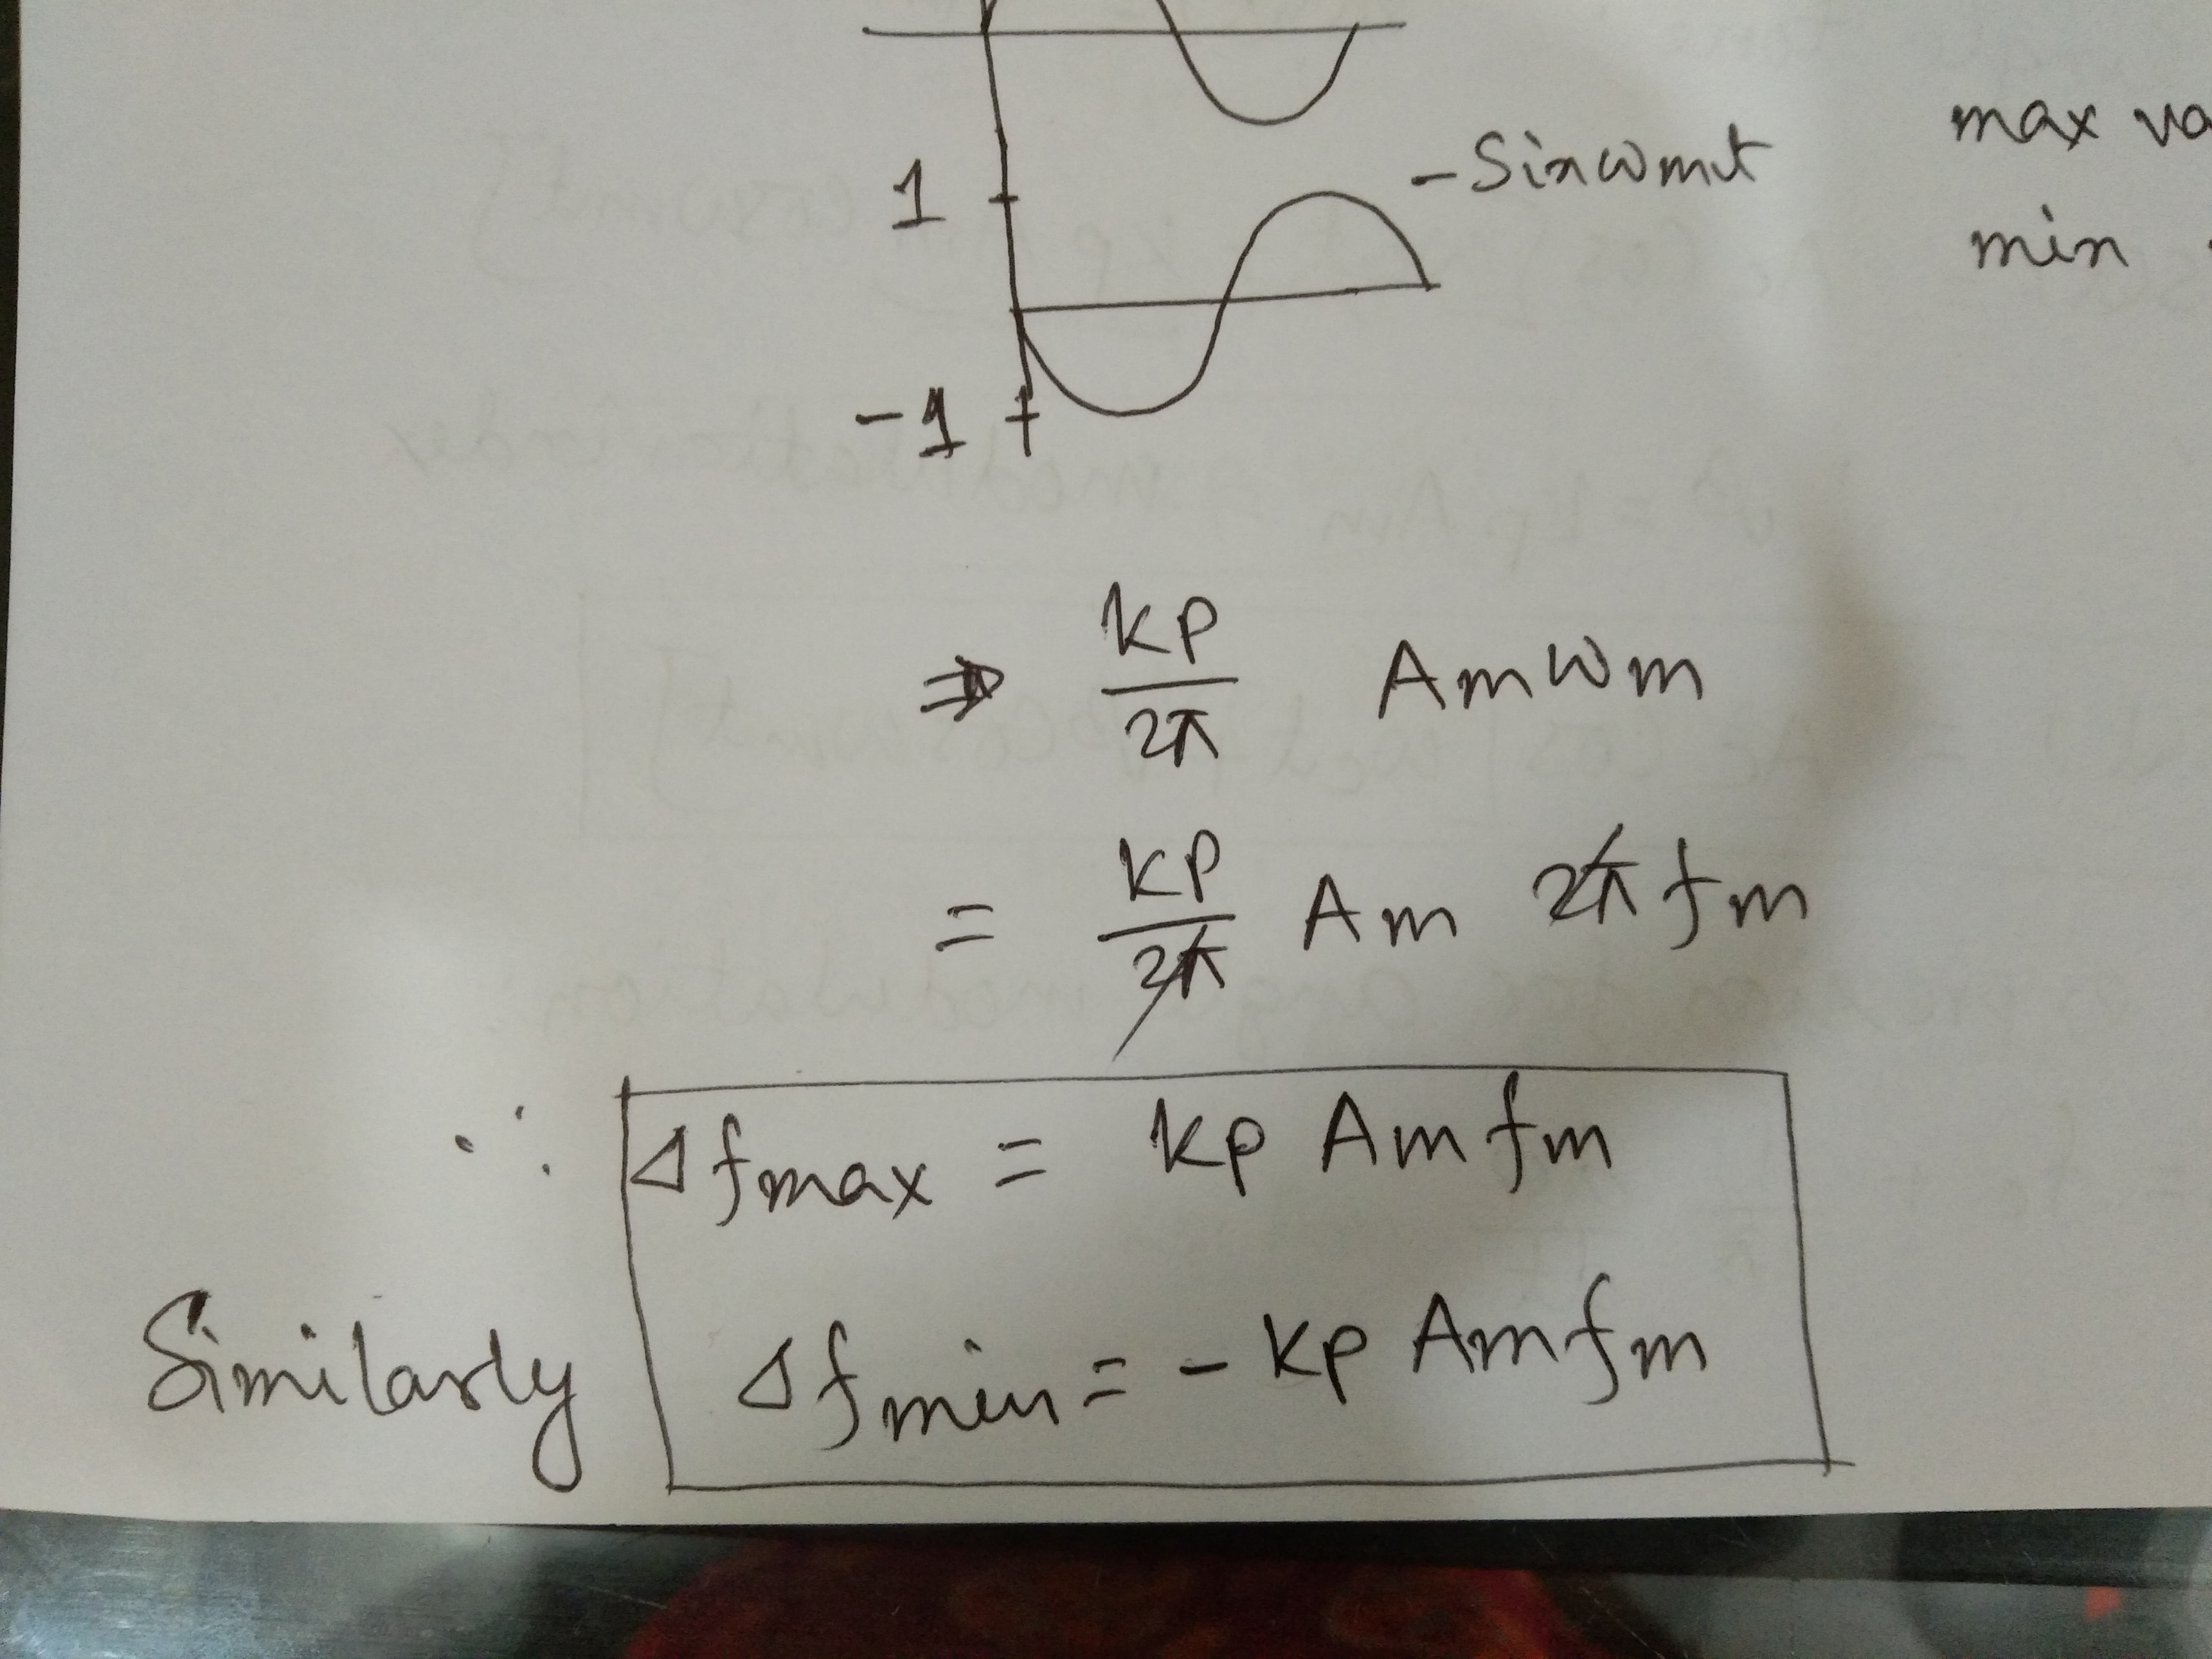 1
- Sinωmt
max va
min
-1
⇒ kp/2π Amωm
= kp/2π Am 2π fm
∴ Δfmax = kp Am fm
Similarly Δfmin = - kp Am fm